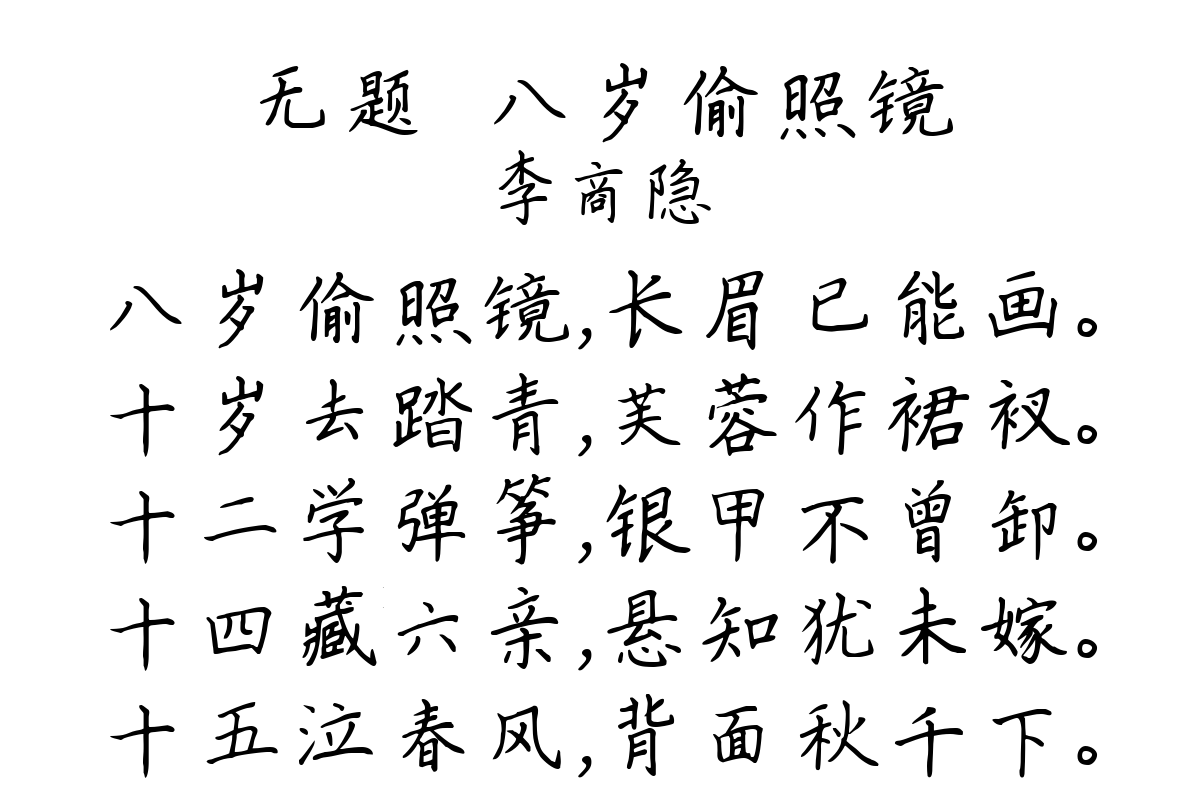 无题 八岁偷照镜
李商隐
八岁偷照镜,长眉已能画。
十岁去踏青,芙蓉作裙衩。
十二学弹筝,银甲不曾卸。
十四藏六亲,悬知犹未嫁。
十五泣春风,背面秋千下。